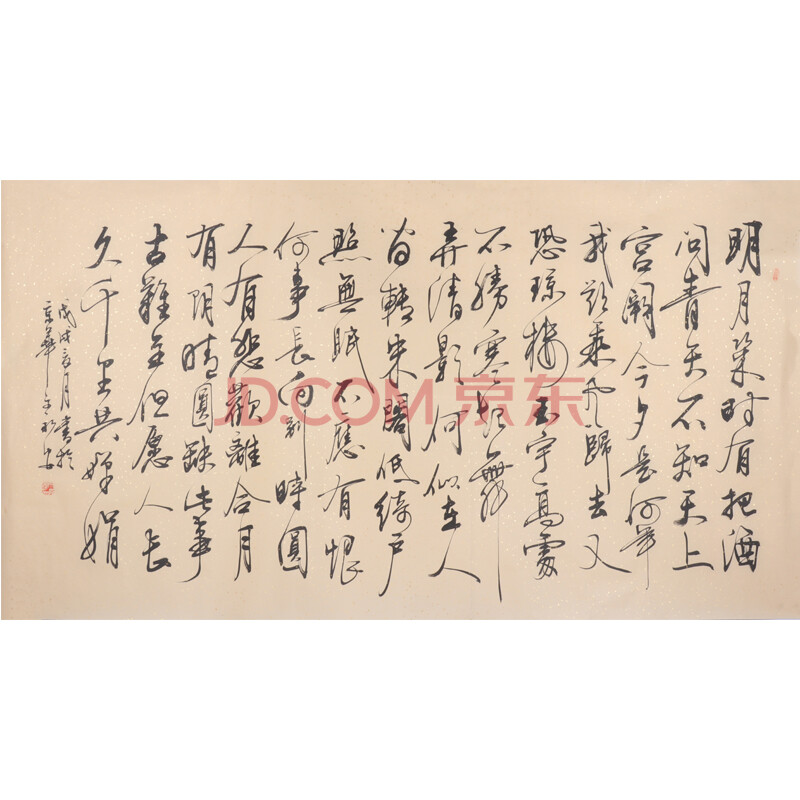 明月幾时有把酒
问青天不知天上
宫阙今夕是何年
我欲乘风歸去又
恐琼楼玉宇高處
不勝寒起舞
弄清影何似在人
间轉朱閣低綺户
照無眠不應有恨
何事長向別時圓
人有悲歡離合月
有阴晴圓缺此事
古難全但愿人長
久千里共嬋娟
戊戌月書於
京華
JD.COM 京东